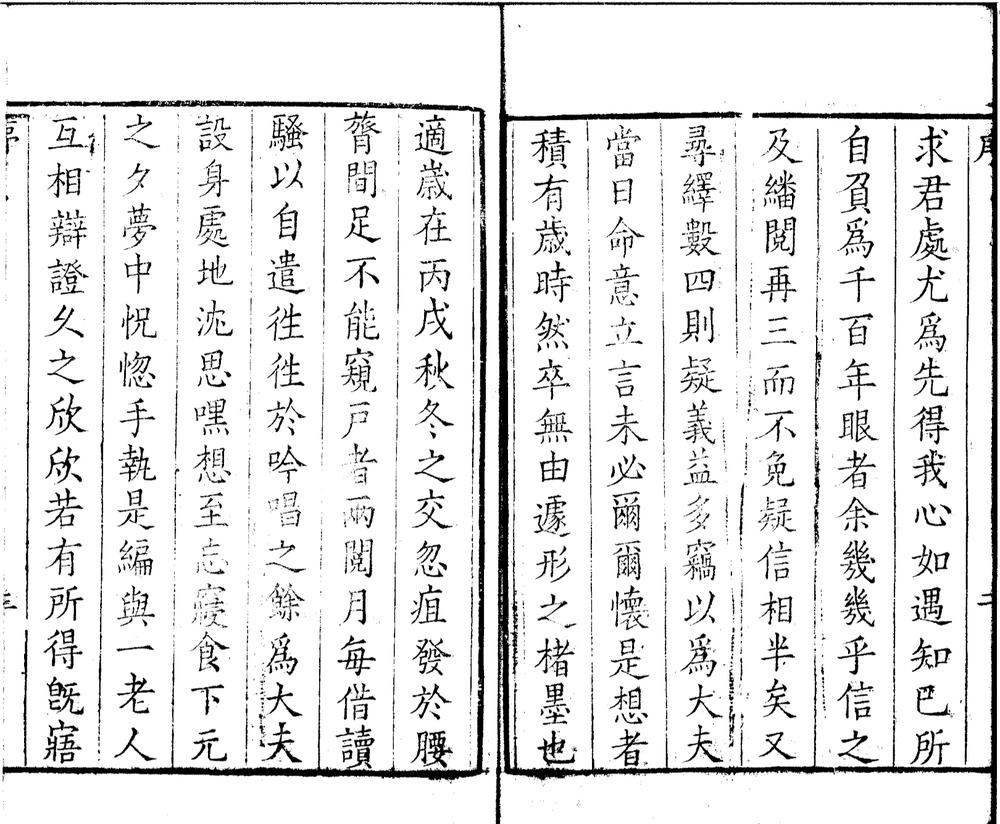 求君處尤爲先得我心如遇知巴所
自負爲千百年眼者余幾幾乎信之
及繙閱再三而不免疑信相半矣又
尋繹數四則疑義益多竊以爲大夫
當日命意立言未必爾爾懷是想者
積有歲時然卒無由遽形之楮墨也
適歲在丙戌秋冬之交忽疽發於腰
膂間足不能窺戸者兩閱月每借讀
騷以自遣徃徃於吟唱之餘爲大夫
設身處地沈思嘿想至忘寢食下元
之夕夢中怳惚手執是編與一老人
互相辯證乆之欣欣若有所得旣寤